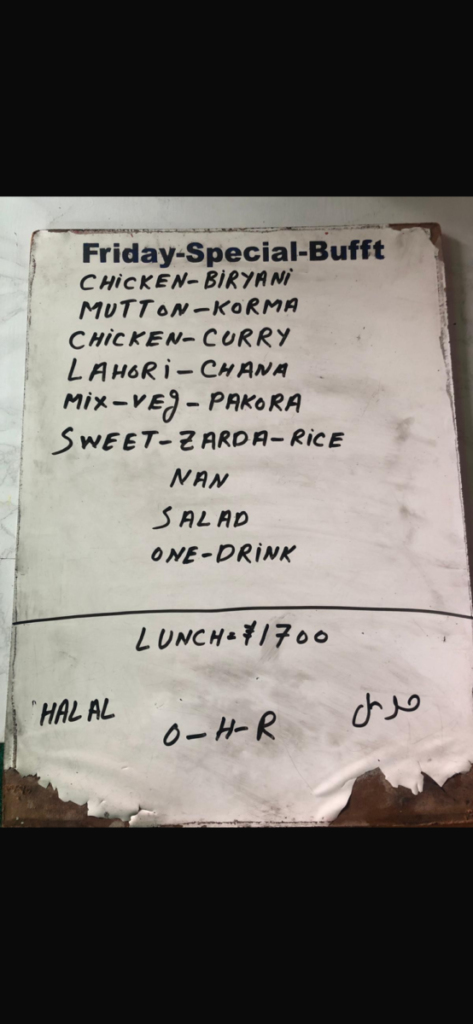 Friday-Special-Bufft
CHiCKEN-BiRYANi
MUTTON-KORMA
CHiCKEN-CURRY
LAHORi-CHANA
Mix-VEg-PAKORA
SWEET-ZARDA-RiCE
NAN
SALAD
ONE-DRiNK
LUNCH=¥1700
HALAL
O-H-R